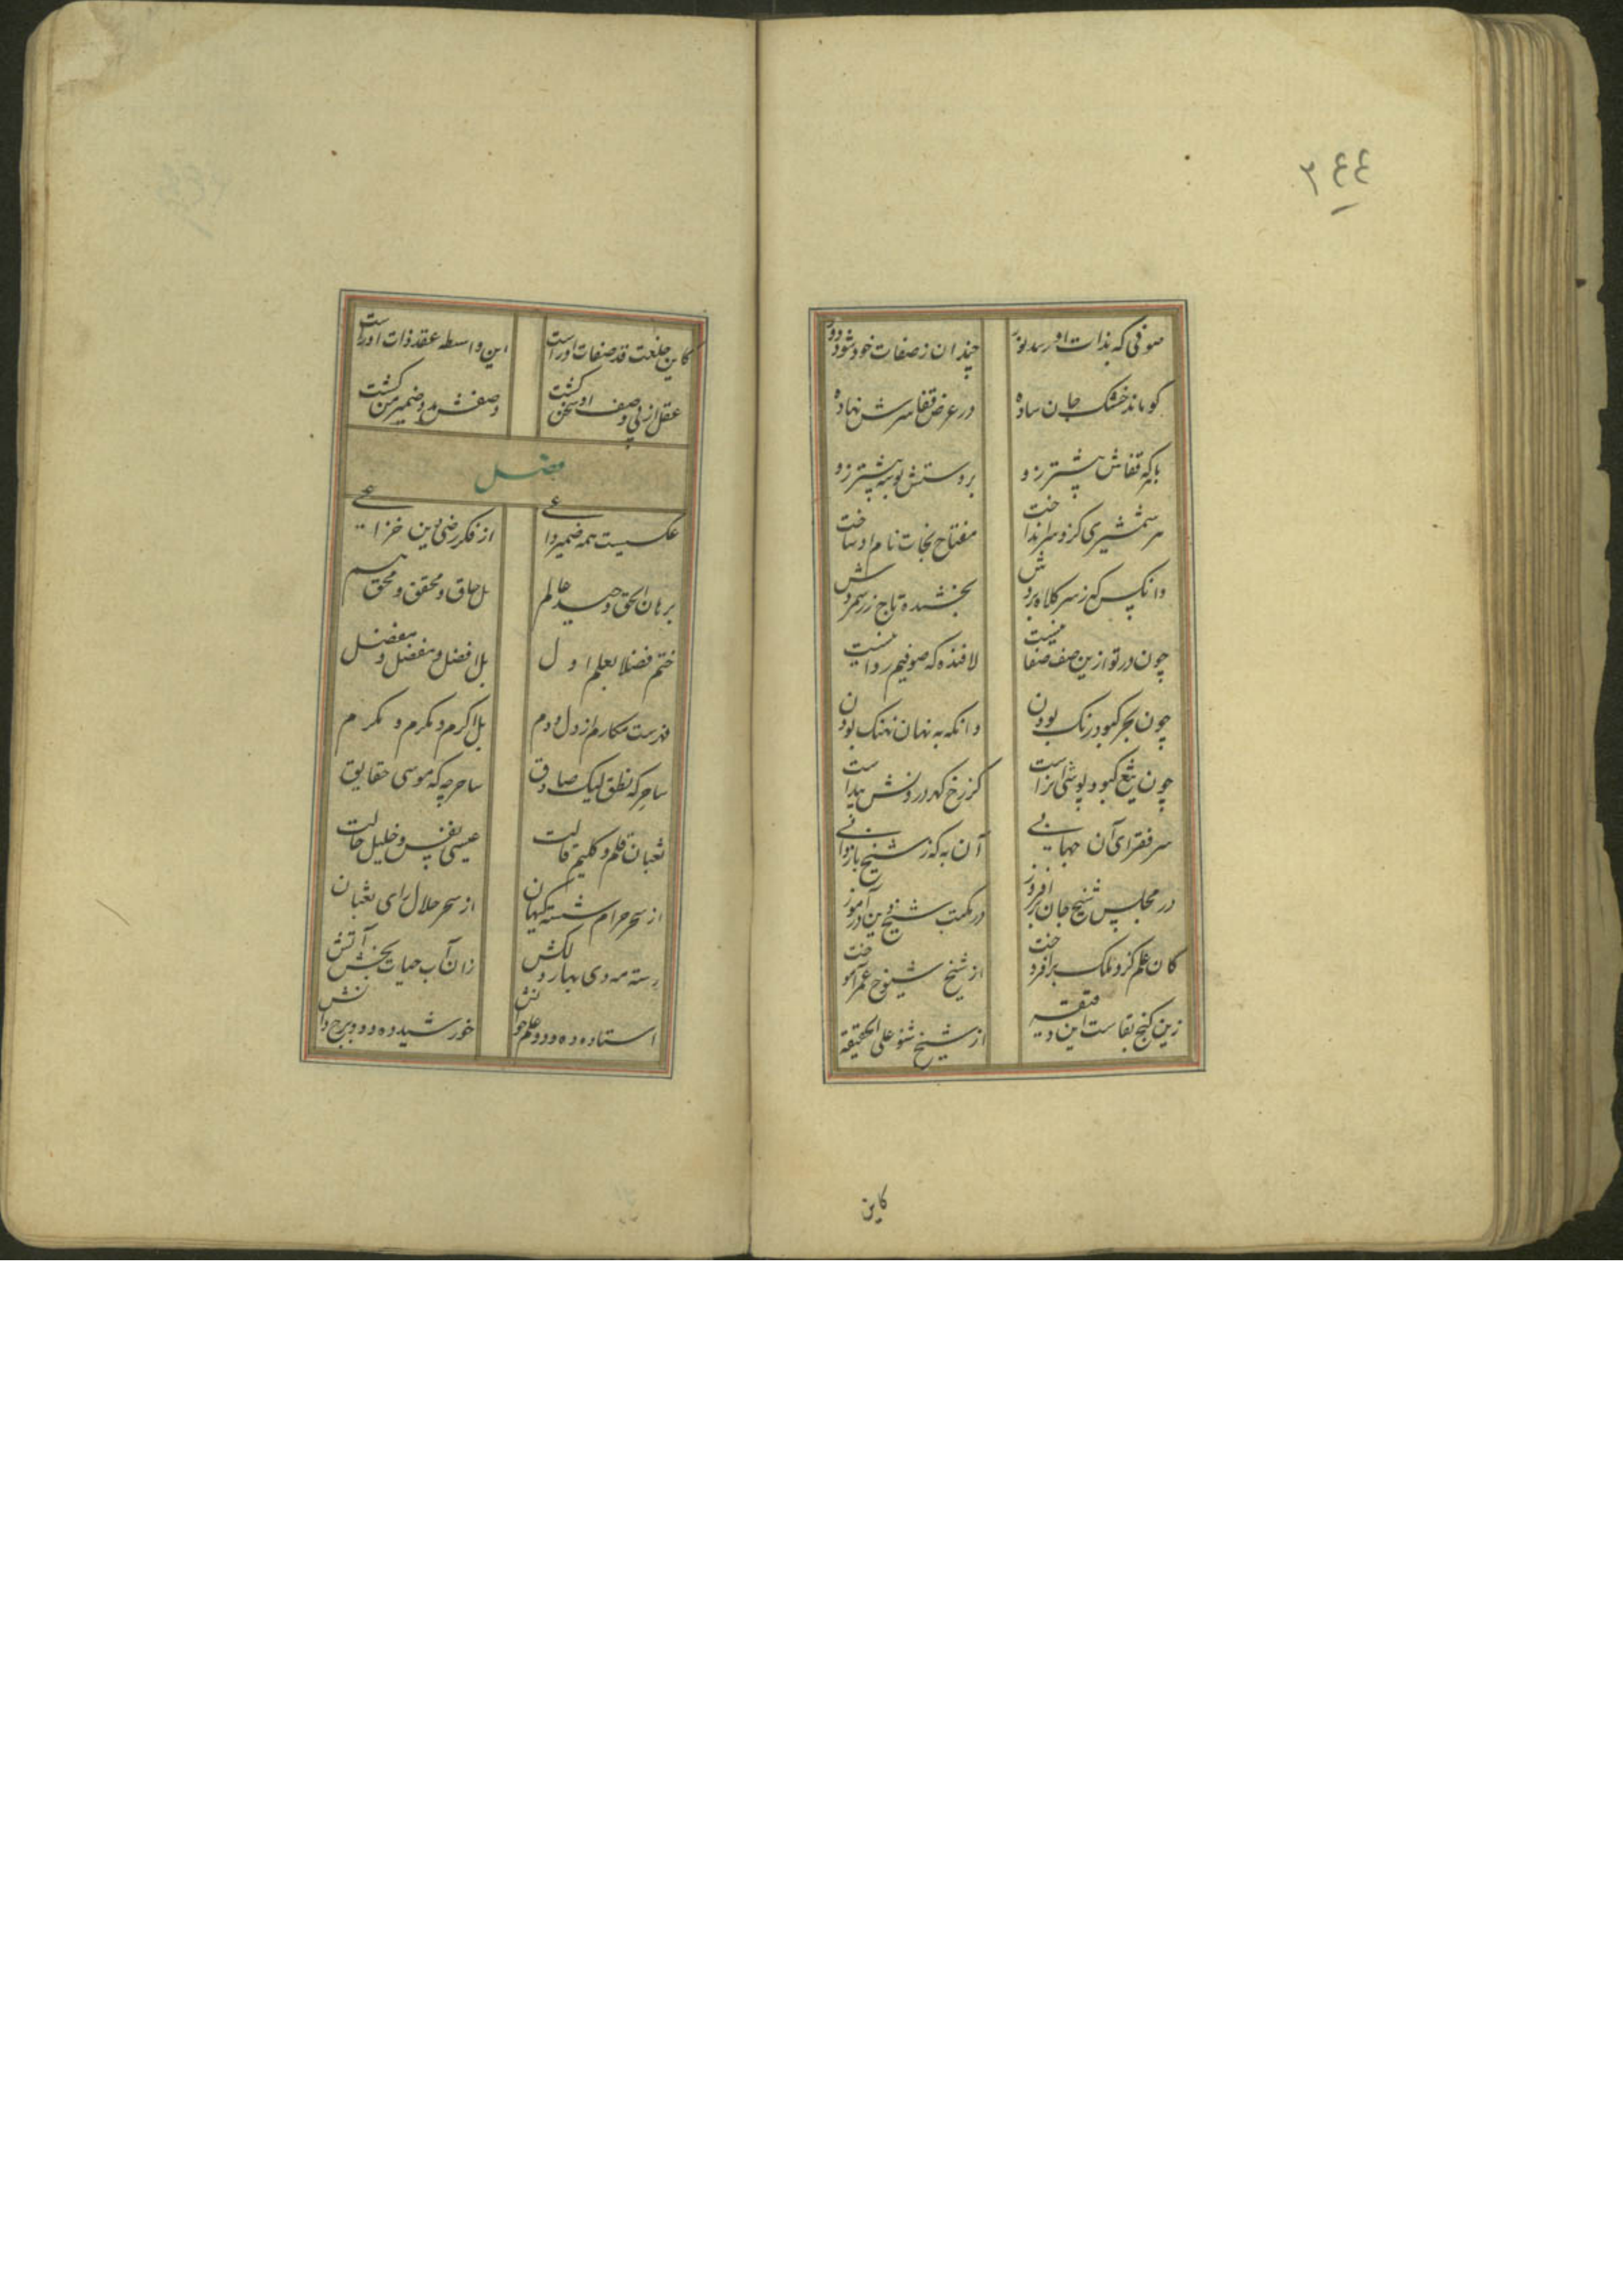 ٢٤٤
صوفی که بذات او رسد زود چندان ز صفات خود شود دور
کو ماند خشک جان ساده در عرض قفا سرش نهاده
با که قفاش پیشتر زو بر دستش بوسه پیشتر زو
هر شمشیری کزو سر انداخت مفتاح نجات نام او ساخت
وانکس که ز سر کلاه بردش بخشنده تاج زر شمردش
چون در تو ازین صف صفا نیست لافنده که صوفیم روا نیست
چون بحر کبود رنگ بودن وانکه به نهان نهنک بودن
چون تیغ کبود پوشی آن راست کز رخ گهر درونش پیداست
سر فقرای آن جهانی آن به که ز شیخ باز دانی
در مجلس شیخ جان برافروز در مکتب شیخ دین درآموز
کان علم کزو ملک برافروخت از شیخ شیوخ عمر آموخت
زین کنج بقاست این دقیقه از شیخ شنو علی الحقیقه
کاین
کاین خلعت قد صفات او راست این واسطه عقد ذات او راست
عقل از پی وصف او سخن گشت وصفش مدد ضمیر من گشت
فصل
عکسیست همه ضمیر داعی از فکر رضی دین خزاعی
برهان الحق وحید عالم بل حاق و محقق و محق هم
ختم فضلا بعلم اول بل افضل و مفضل و مفضل
فهرست مکارم از دل و دم بل اکرم و مکرم و مکرم
ساحر که نطق لیک صادق ساحر چه که موسی حقایق
ثعبان قلم و کلیم قالت عیسی نفس و خلیل حالت
از سحر حرام شسته کیهان از سحر حلال رای ثعبان
رسته مه دی بهار دلکش زان آب حیات بخش آتش
استاده ده و دو علم خوانش خورشید ده و دو برج دانش